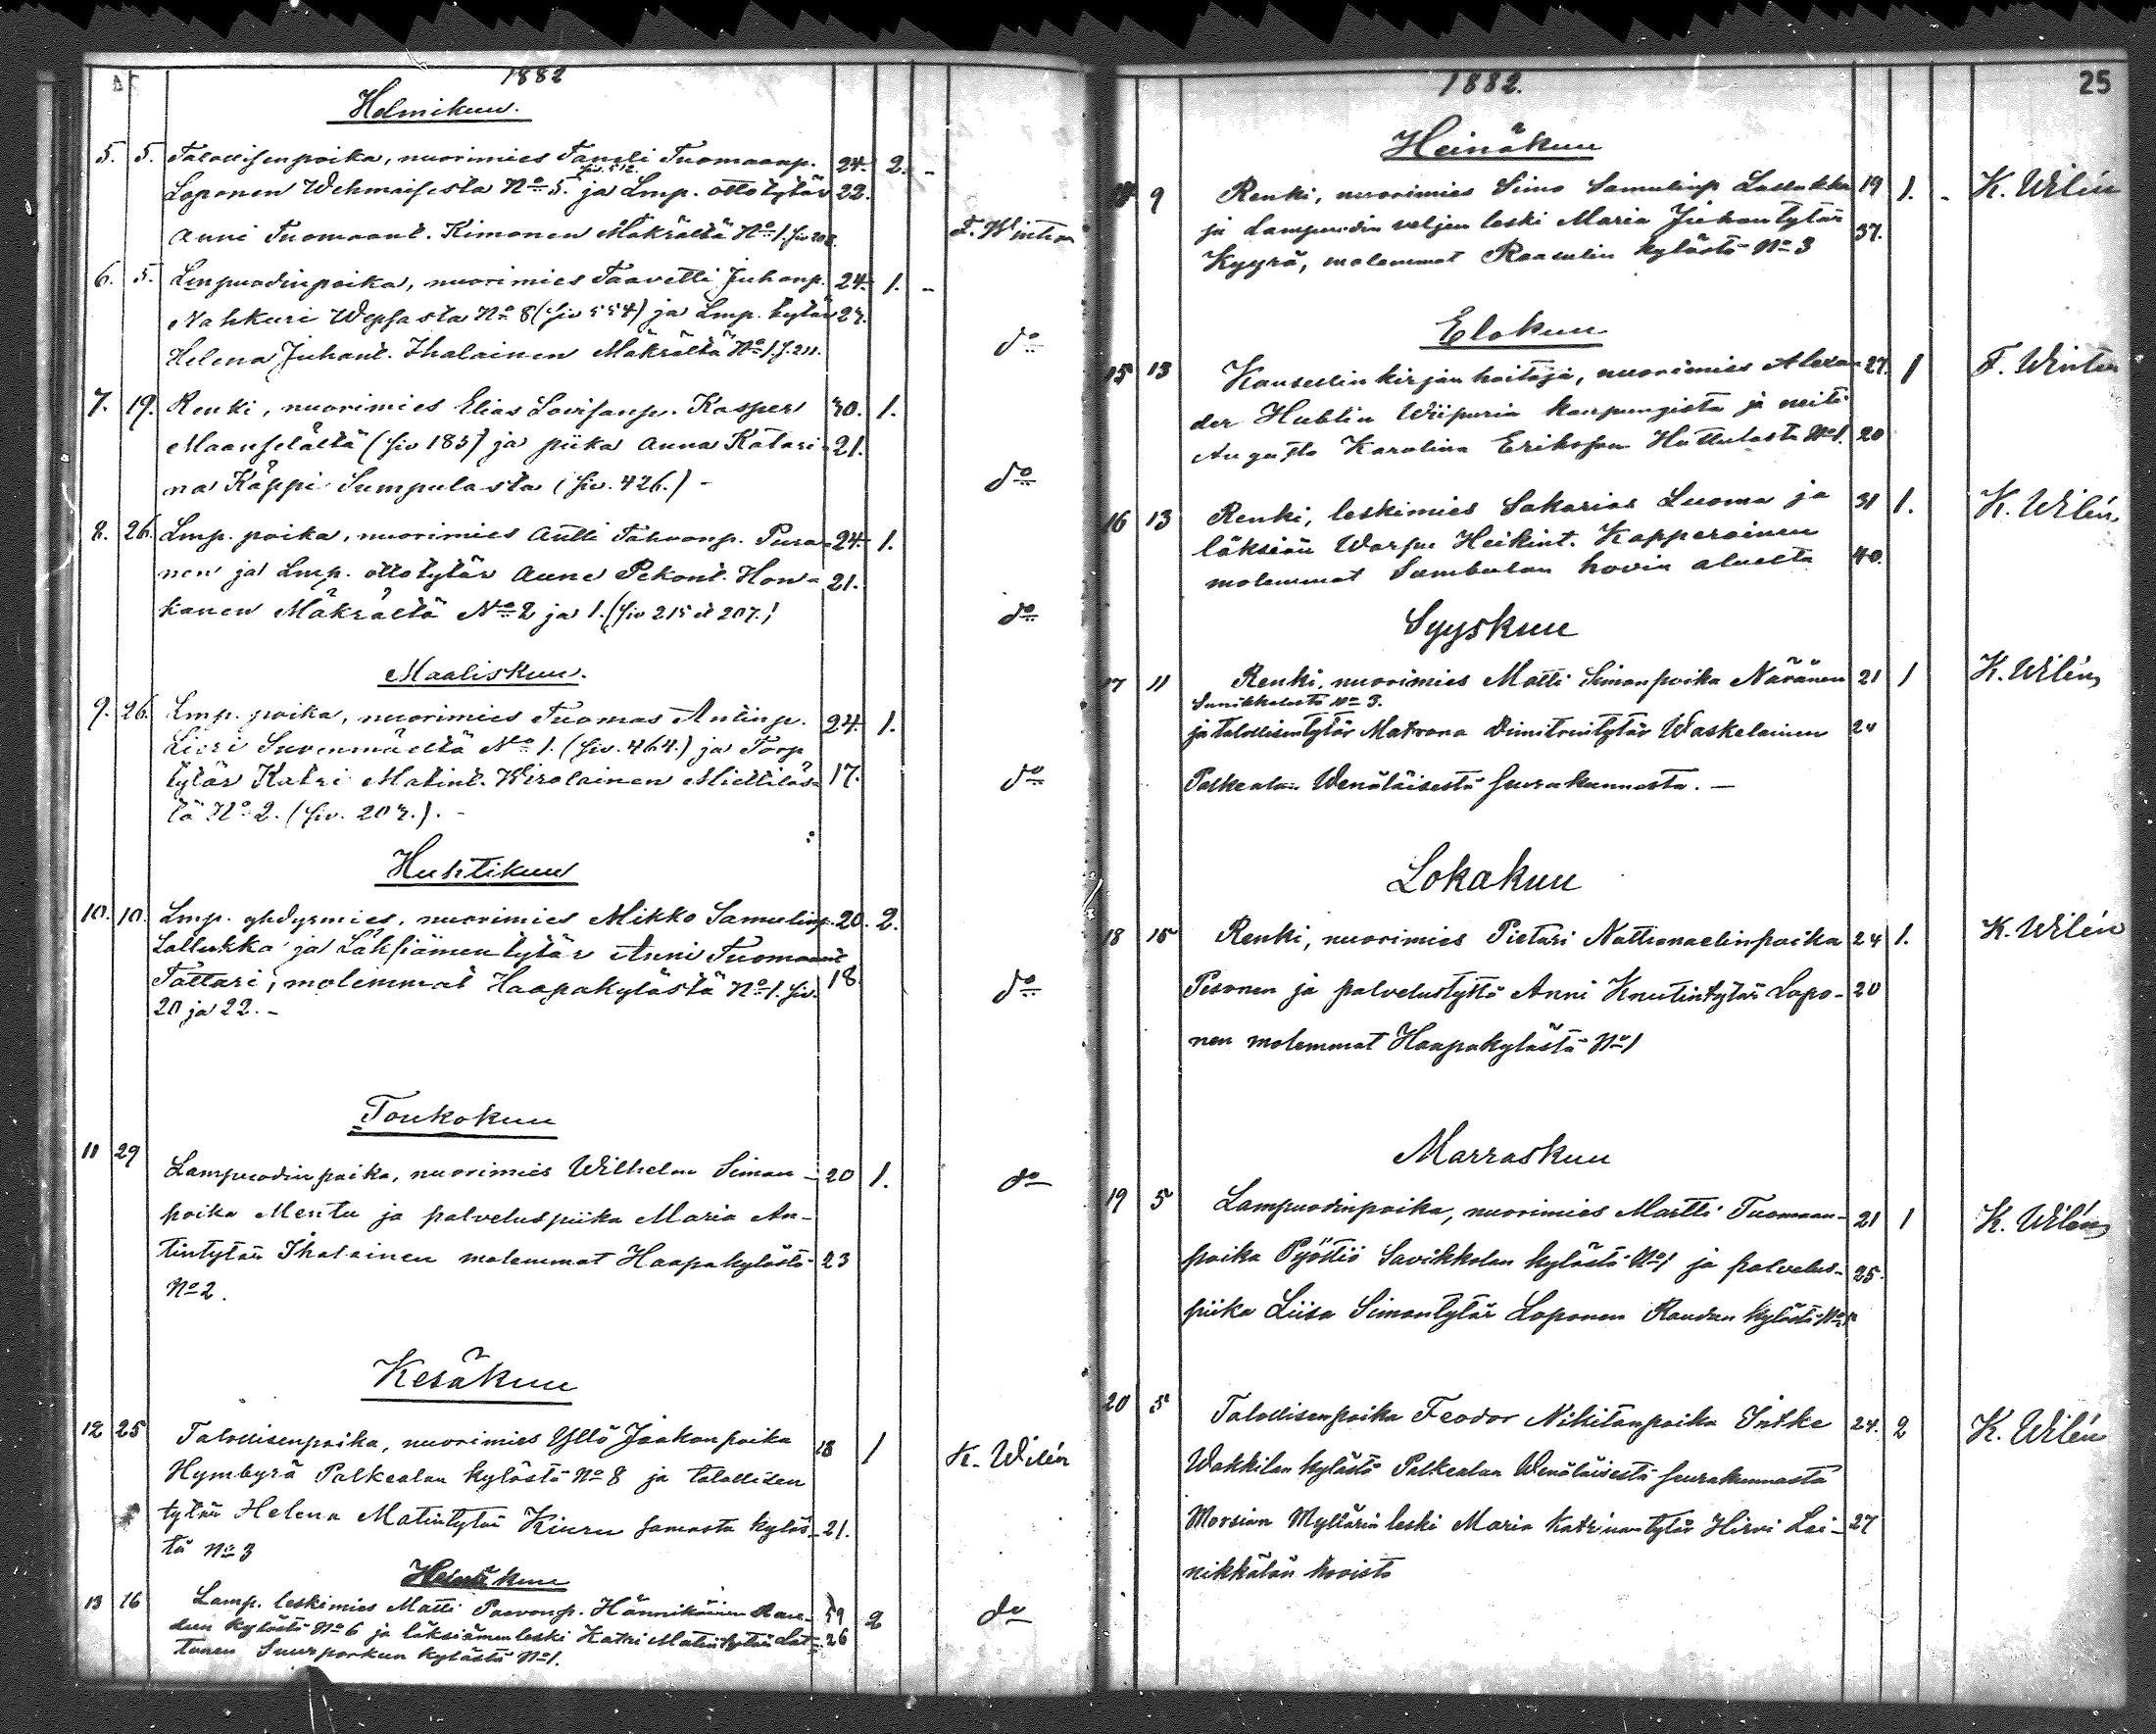 1882
Helmikuu.
5. 5. Talollisenpoika, nuorimies Taneli Tuomaanp. 24. 2. -
siv. 512.
Loponen Wehmaisesta No 5. ja Lmp. ottotytär 22.
Anni Tuomaant. Kimonen Mäkrältä No 1. siv 208. F. Winter
6. 5. Lmpuodinpoika, nuorimies Taavetti Juhanp. 24. 1. -
Nahkuri Wepsasta No 8 (siv 554) ja Lmp. tytär 27.
Helena Juhant. Ihalainen Mäkrältä No 1. s. 211. do
7. 19. Renki, nuorimies Elias Lovisanp. Kasper 30. 1.
Maanselältä (siv 185) ja piika Anna Katari- 21.
na Käppi Sumpulasta (siv. 426.) - do
8. 26. Lmp. poika, nuorimies Antti Tahvonp. Pura- 24. 1.
nen ja Lmp. ottotytär Anne Pekont. Hon- 21.
kanen Mäkrältä No 2 ja 1. (siv 215 & 207.) do
Maaliskuu.
9. 26. Lmp. poika, nuorimies Tuomas Antinp. 24. 1.
Lieri Suvenmäeltä No 1. (siv. 464.) ja Torp
tytär Katri Matint. Wirolainen Miettiläs- 17. do
tä No 2. (siv. 207.). -
Huhtikuu
10. 10. Lmp. yhdysmies, nuorimies Mikko Samulinp. 20. 2.
Lallukka ja Läksiäimen tytär Anni Tuomaant
Tattari, molemmat Haapakylästä No 1. siv. 18 do
20 ja 22. -
Toukokuu
11 29 Lampuodinpoika, nuorimies Wilhelm Siman- 20 1. do
poika Mentu ja palveluspiika Maria An-
tintytär Ihalainen molemmat Haapakylästä 23
No 2.
Kesäkuu
12 25 Talollisenpoika, nuorimies Yllö Jaakonpoika 18 1 K. Wilén
Hymbyrä Palkealan kylästä No 8 ja talollisen
tytär Helena Matintytär Kiuru samasta kyläs- 21.
tä No 3
Heinäkuu
13 16 Lamp. leskimies Matti Paavonp. Hännikäinen Rau- 59 2 do
dun kylästä No 6 ja läksiämen leski Katri Matintytär Lat- 26
tunen Suurporkun kylästä No 1.
1882. 25
Heinäkuu
14 9 Renki, nuorimies Simo Samulinp Lallukka 19 1. - K. Wilén
ja Lampuodin veljen leski Maria Juhontytär 37.
Kyyrä, molemmat Raasulin kylästä No 3
Elokuu
15 13 Kansellin kirjan hoitaja, nuorimies Alexan- 27. 1 F. Winter
der Hublin Wiipurin kaupungista ja neiti
Augusta Karolina Eriksson Huttulasta No 1. 20
16 13 Renki, leskimies Sakarias Luoma ja 31 1. K. Wilén
läksiäin Warpu Heikint. Kapperoinen
molemmat Sumbulan hovin alueelta 40.
Syyskuu
17 11 Renki, nuorimies Matti Simonpoika Näränen 21 1 K. Wilén
Sunikkalasta No 3.
ja talollisentytär Matrona Dimitrintytär Waskelainen 24
Palkealan Wenäläisestä seurakunnasta. -
Lokakuu
18 15 Renki, nuorimies Pietari Nattanaelinpoika 24 1. K. Wilén
Pesonen ja palvelustyttö Anni Knutintytär Lopo- 20
nen molemmat Haapakylästä No 1
Marraskuu
19 5 Lampuodinpoika, nuorimies Martti Tuomaan- 21 1 K. Wilén
poika Pyöttiö Savikkolan kylästä No 1 ja palvelus- 25.
piika Liisa Simontytär Loponen Raudun kylästä No
20 5 Talollisenpoika Feodor Nikitanpoika Intke 24. 2 K. Wilén
Wakkilan kylästä Palkealan Wenäläisestä seurakunnasta
Morsian Myllärin leski Maria Katrinantytär Hirvi Lei- 27
nikkälän hovista